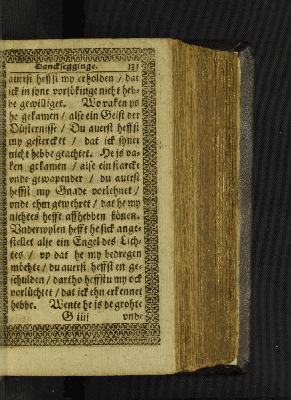 Dancksegginge. 131
auerst heffst my erholden / dat
ick in syne vorsökinge nicht heb-
be gewilliget. Wo vaken ys
he gekamen / alse ein Geist der
Düsternisse / Du auerst heffst
my gestercket / dat ick syner
nicht hebbe geachtet. He is va-
ken gekamen / alse ein starcke
vnde gewapender / du auerst
heffst my Gnade vorlehnet /
vnde ehm gewehret / dat he my
nichtes hefft affhebben könen.
Vnderwylen hefft he sick ange-
stellet alse ein Engel des Lich-
tes / vp dat he my bedregen
möchte / du auerst heffst en ge-
schulden / dartho heffstu my ock
vorlüchtet / dat ick ehn erkennet
hebbe. Wente he is de grohte
G iiij vnde